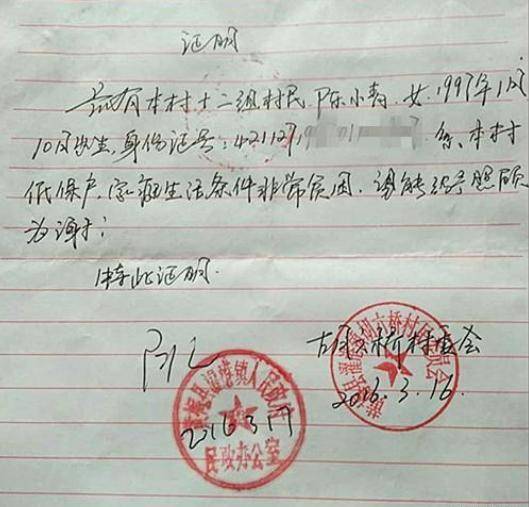 证明
兹有本村十二组村民陈小青,女,1997年1月
10日出生,身份证号:421127,19 01 系本村
低保户,家庭生活条件非常贫困,请能给予照顾
为谢!
特此证明.
黄梅县 镇人民政府
民政办公室
2016.3.17
桥村委会
2016.3.16.